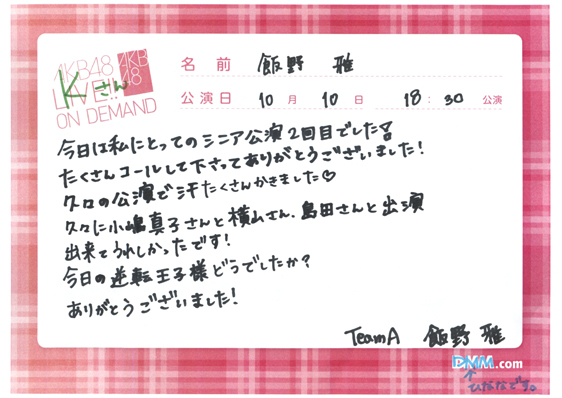 AKB48
LIVE!!
ON DEMAND
AKB
48
Kさん
名前 飯野 雅
公演日 10月10日 18:30公演
今日は私にとってのシニア公演2回目でした!
たくさんコールして下さってありがとうございました!
久々の公演で汗たくさんかきました♡
久々に小嶋真子さんと横山さん、島田さんと出演
出来てうれしかったです!
今日の逆転王子様どうでしたか?
ありがとうございました!
TeamA 飯野 雅
DMM.com
↑ひななです。